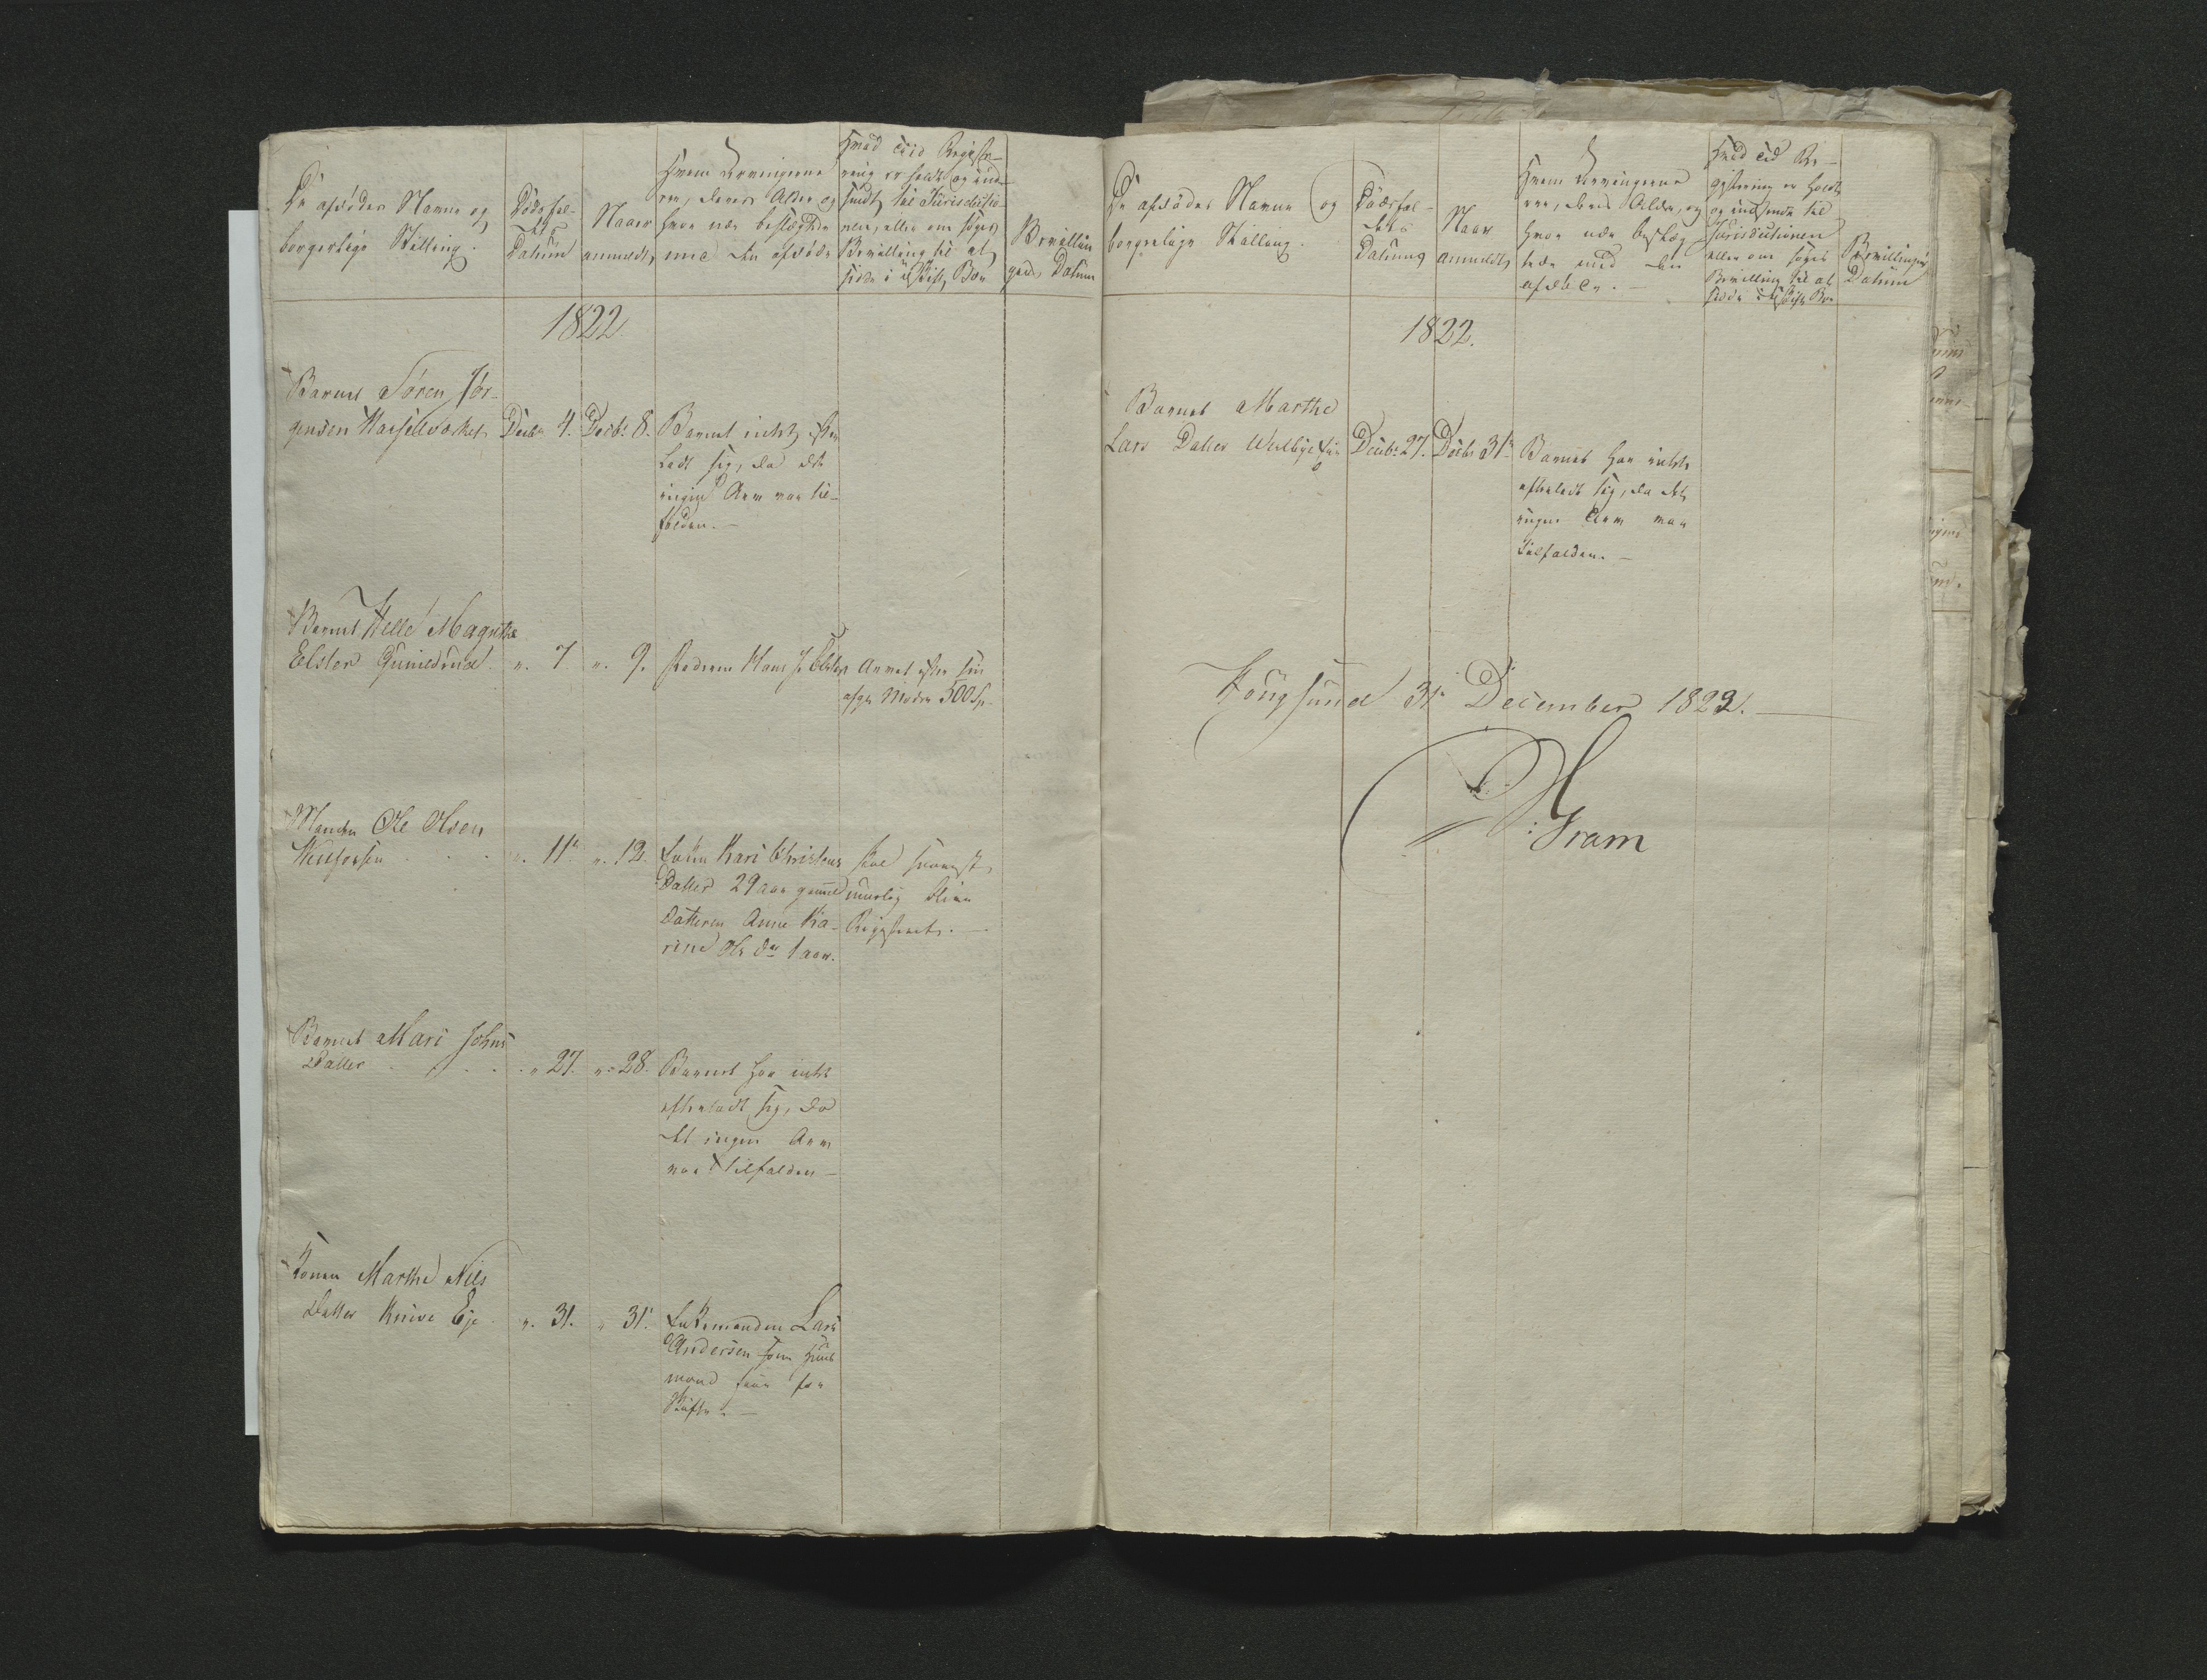 De afdødes Navne og
borgerlige Stilling.
Dødsfal-
dets
Datum
Naar
anmeldt,
Hvem Arvingerne
ere, deres Alder og
hvor nær beslægtede
med den afdøde
Hvad Tiid Registe-
ring er holdt og ind-
sendt til Jurisdictio-
nen, eller om søges
Bevilling til at
sidde i uskift, Boe
Bevillin
gens Datum
1822
Barnet Søren Jør-
gensen
Decbr 4. Decbr 8. Barnet intet efter
ladt sig, da det
ingen Arv var til-
falden.
Barnet Helle Magrethe
Elster
" 7. " 9. Faderen Hans J. Elster Arvet efter sin
afgl. Moder 500 Sp.
Manden Ole Olsen
" 11 " 12. Enken Kari Christens
Datter 29 aar gammel
Datteren Anne Ka-
rine Ols dr 1 aar.
skal snarest
muelig blive
Registreret.
Barnet Mari Johns
Datter " 27. " 28. Barnet har intet
efterladt sig, da
det ingen Arv
var tilfalden
Konen Marthe Nils
Datter Knive Eje " 31. " 31. Enkemanden Lars
Andersen som Huus
mand
De afdødes Navne og
borgerlige Stilling.
Dødsfal-
dets
Datum
Naar
anmeldt,
Hvem Arvingerne
ere, deres Alder, og
hvor nær beslæg-
tede med den
afdøde.
Hvad Tid Re-
gistering er holdt
og indsendt til
Jurisdictionen
eller om søges
Bevilling til at
sidde i uskift Boe
Bevillingens
Datum
1822.
Barnet Marthe
Lars Datter Decbr 27. Decbr 31. Barnet har intet
efterladt sig, da det
ingen Arv var
tilfalden.
31 December 1822.
Gram